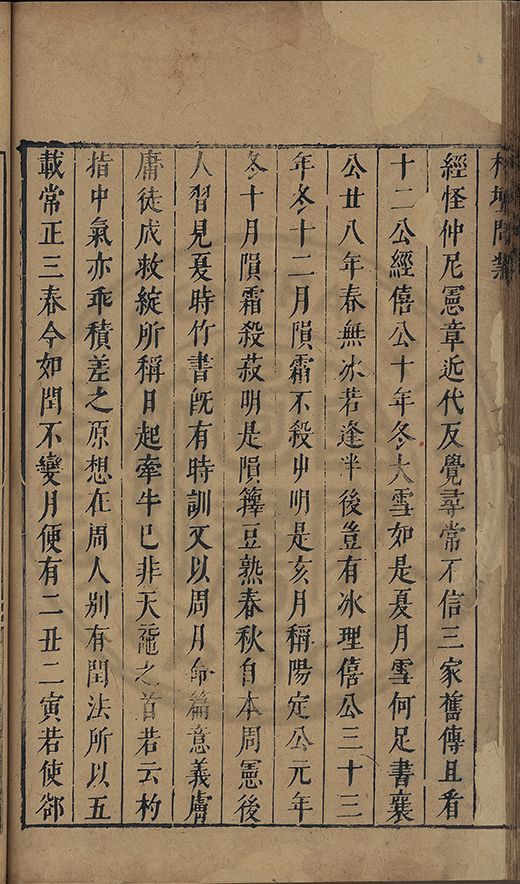 經怪仲尼憲章近代反覺尋常不信三家舊傳且看
十二公經僖公十年冬大雪如是夏月雪何足書襄
公廿八年春無冰若逢半後豈有冰理僖公三十三
年冬十二月隕霜不殺屮明是亥月稱陽定公元年
冬十月隕霜殺菽明是隕籜豆熟春秋自本周憲後
人習見夏時竹書旣有時訓又以周月命篇意義膚
庸徒成救綻所稱日起牽牛巳非天黿之首若云杓
指中氣亦乖積差之原想在周人別有閏法所以五
載常正三春今如閏不變月便有二丑二寅若使郤